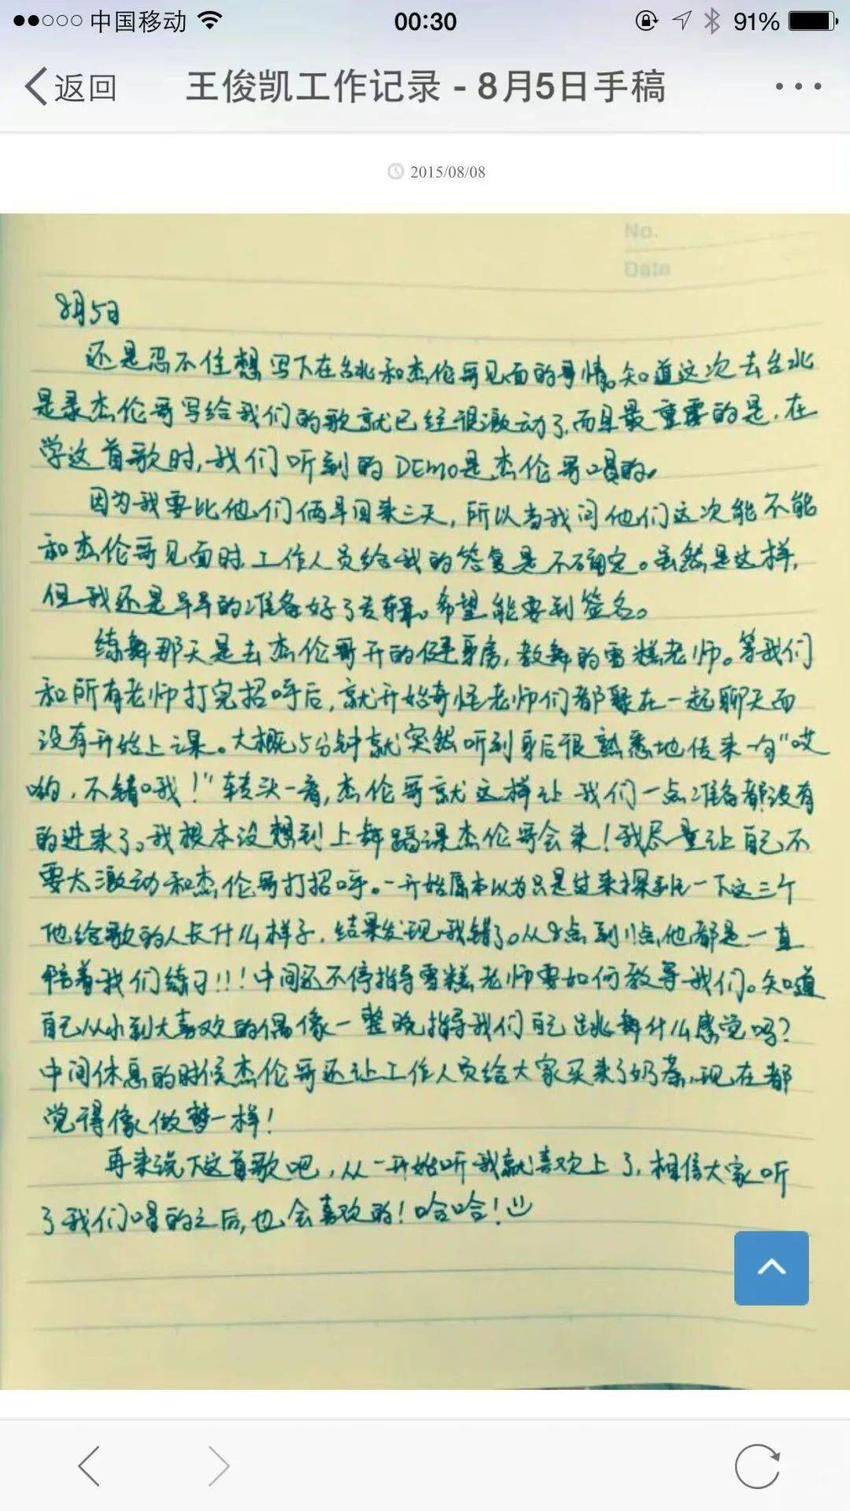 中国移动 00:30 91%
返回 王俊凯工作记录 - 8月5日手稿
2015/08/08
No.
Date
8月5日
还是忍不住想写下在台北和杰伦哥见面的事情。知道这次去台北
是录杰伦哥写给我们的歌就已经很激动了,而且最重要的是,在
学这首歌时,我们听到的DEMO是杰伦哥唱的。
因为我要比他们俩早回来三天,所以当我问他们这次能不能
和杰伦哥见面时,工作人员给我的答复是不确定。虽然是这样,
但我还是早早的准备好了专辑。希望能要到签名。
练舞那天是去杰伦哥开的健身房,教舞的雪糕老师。等我们
和所有老师打完招呼后,就开始奇怪老师们都聚在一起聊天而
没有开始上课。大概5分钟就突然听到身后很熟悉地传来一句"哎
哟,不错哦!"转头一看,杰伦哥就这样让我们一点准备都没有
的进来了。我根本没想到上舞蹈课杰伦哥会来!我尽量让自己不
要太激动和杰伦哥打招呼。一开始原本以为只是过来探班一下这三个
他给歌的人长什么样子,结果发现我错了。从8点到11点他都是一直
陪着我们练习!!!中间还不停指导雪糕老师要如何教导我们。知道
自己从小到大喜欢的偶像一整晚指导我们自己跳舞什么感觉吗?
中间休息的时候杰伦哥还让工作人员给大家买来了奶茶,现在都
觉得像做梦一样!
再来说下这首歌吧,从一开始听我就喜欢上了,相信大家听
了我们唱的之后,也会喜欢的!哈哈!